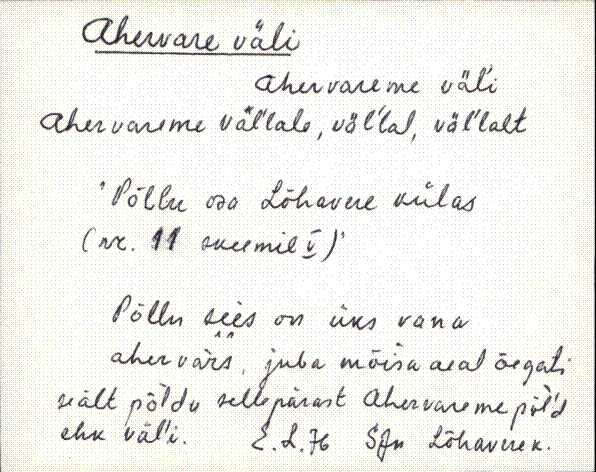 Ahervare väli
Ahervareme väl'i
Ahervareme väl'lale, väl'lal, väl'lalt
'Põllu osa Lõhavere külas
(nr. 11 skeemil V)'
Põllu sees on üks vana
ahervärs, juba mõisa aeal õegati
seält põl'du sellepärast Ahervareme põl'd
ehk väl'i. E. L. 76 SJn Lõhavere k.